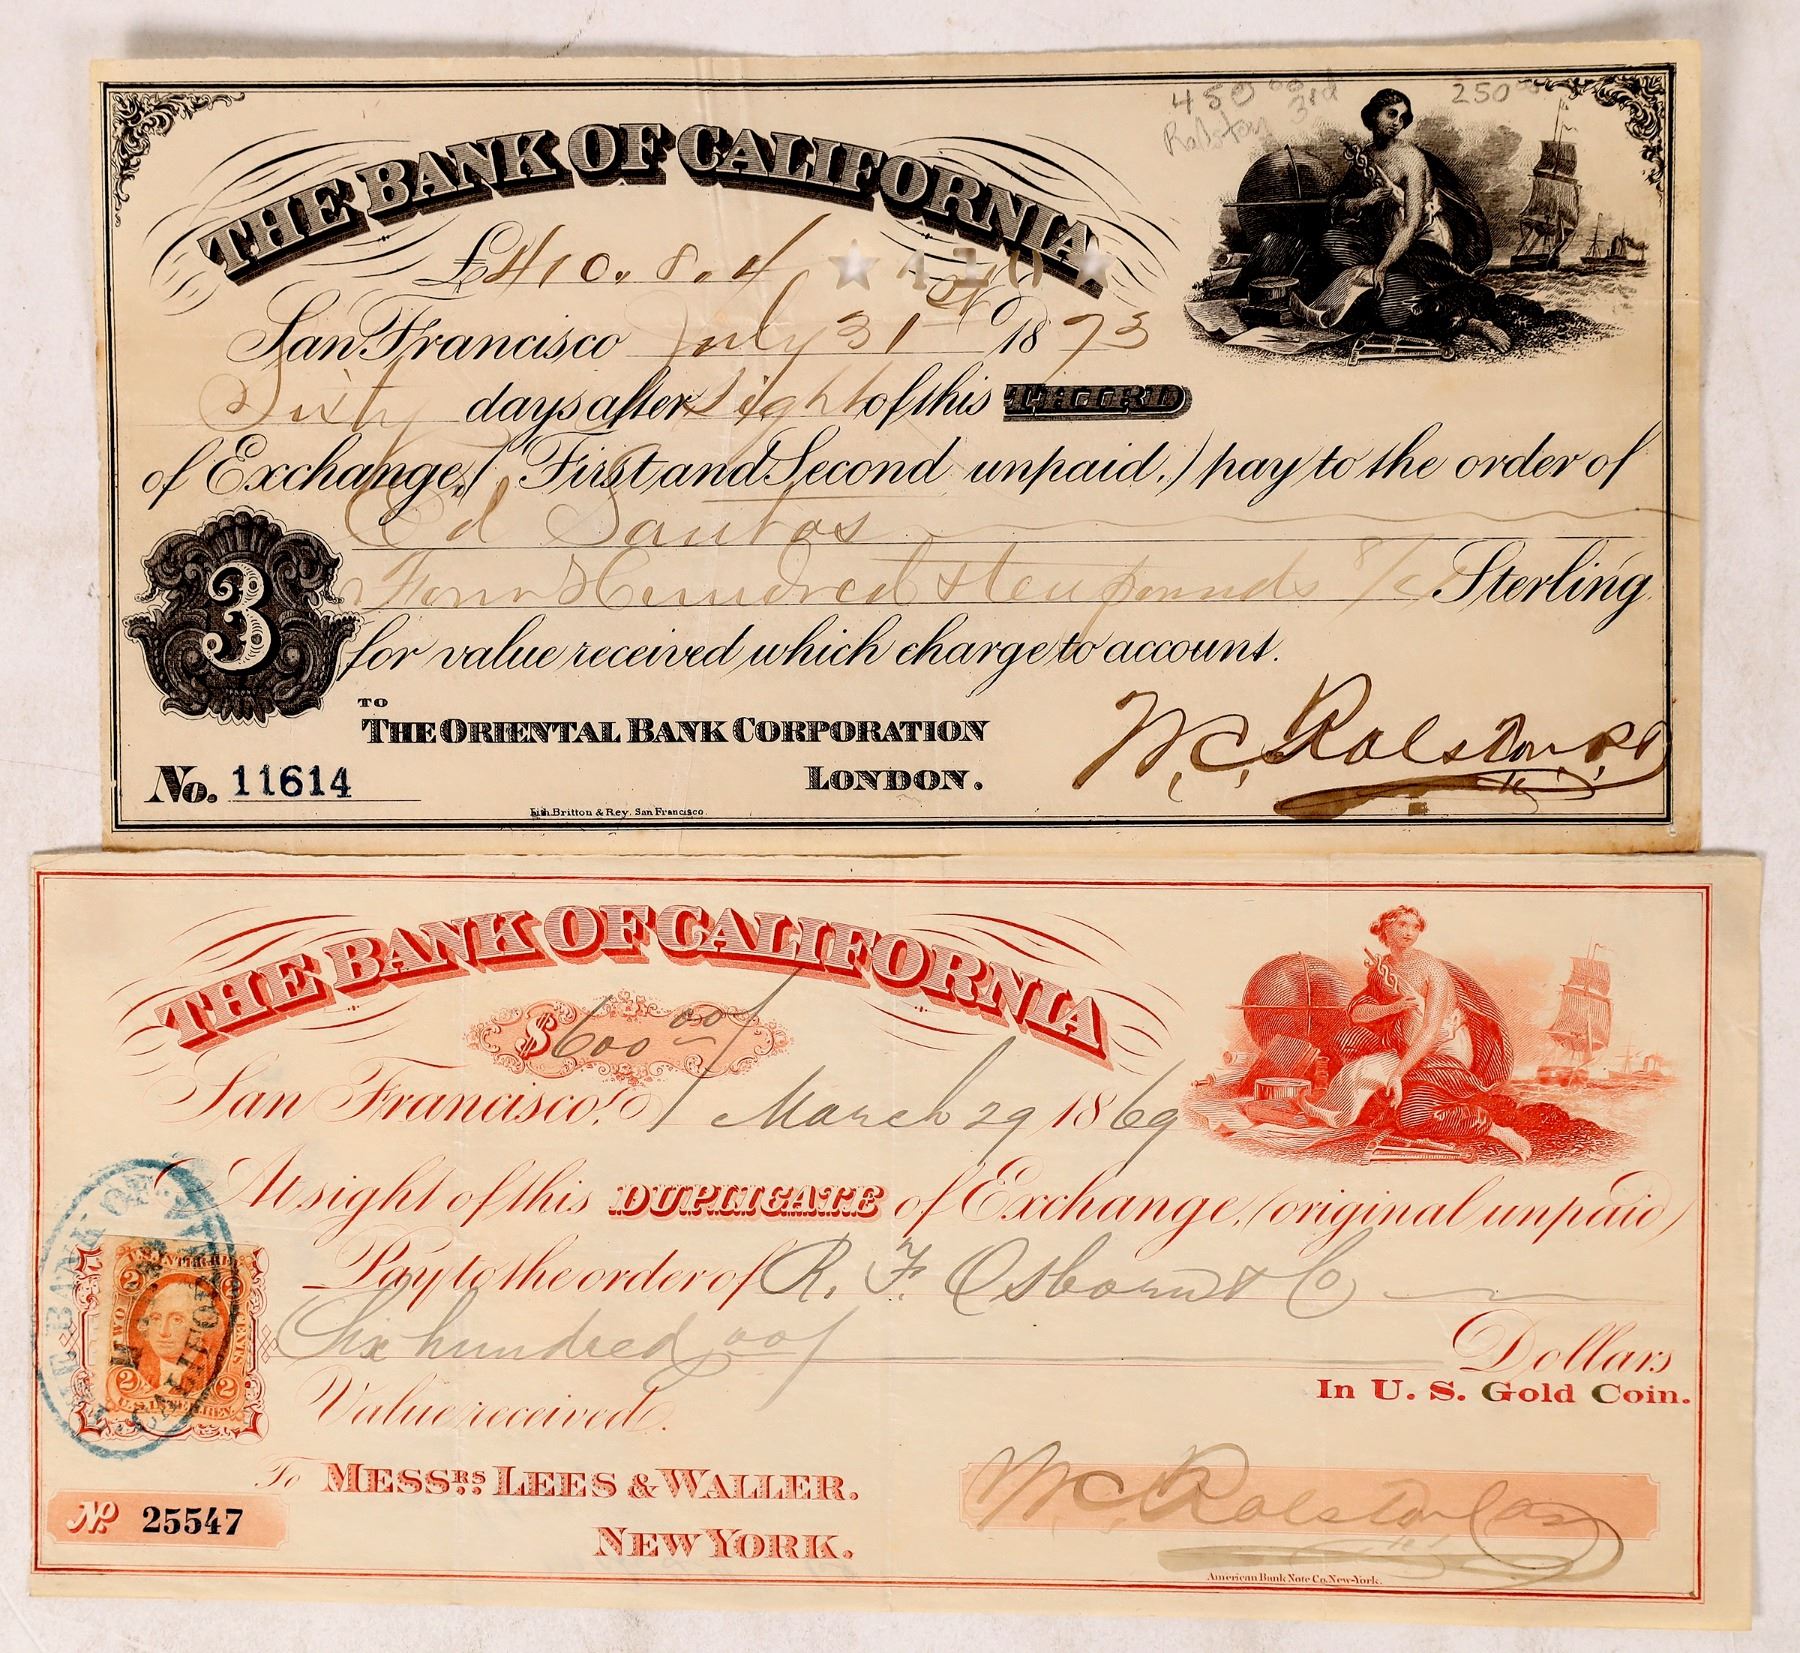 450 00 3rd 250 00
Ralston
THE BANK OF CALIFORNIA
£410.8.4 ★410★
San Francisco July 31st 1873
Sixty days after sight of this THIRD
of Exchange, (First and Second unpaid,) pay to the order of
Ed Santos
Four Hundred & ten pounds 8/4 Sterling
for value received which charge to account.
3
TO
THE ORIENTAL BANK CORPORATION
LONDON.
W. C. Ralston
No. 11614
Lith. Britton & Rey. San Francisco.
THE BANK OF CALIFORNIA
$600 00/
San Francisco, March 29 1869
At sight of this DUPLICATE of Exchange, (original unpaid)
Pay to the order of R. F. Osborn & Co
Six hundred 00/ Dollars
In U. S. Gold Coin.
Value received.
THE BANK OF CALIFORNIA
U.S. INTER. REV.
2 2
TWO CENTS
2 2
U.S. INTER. REV.
To MESSRS. LEES & WALLER.
NEW YORK.
No 25547
W C Ralston Cas
American Bank Note Co. New-York.